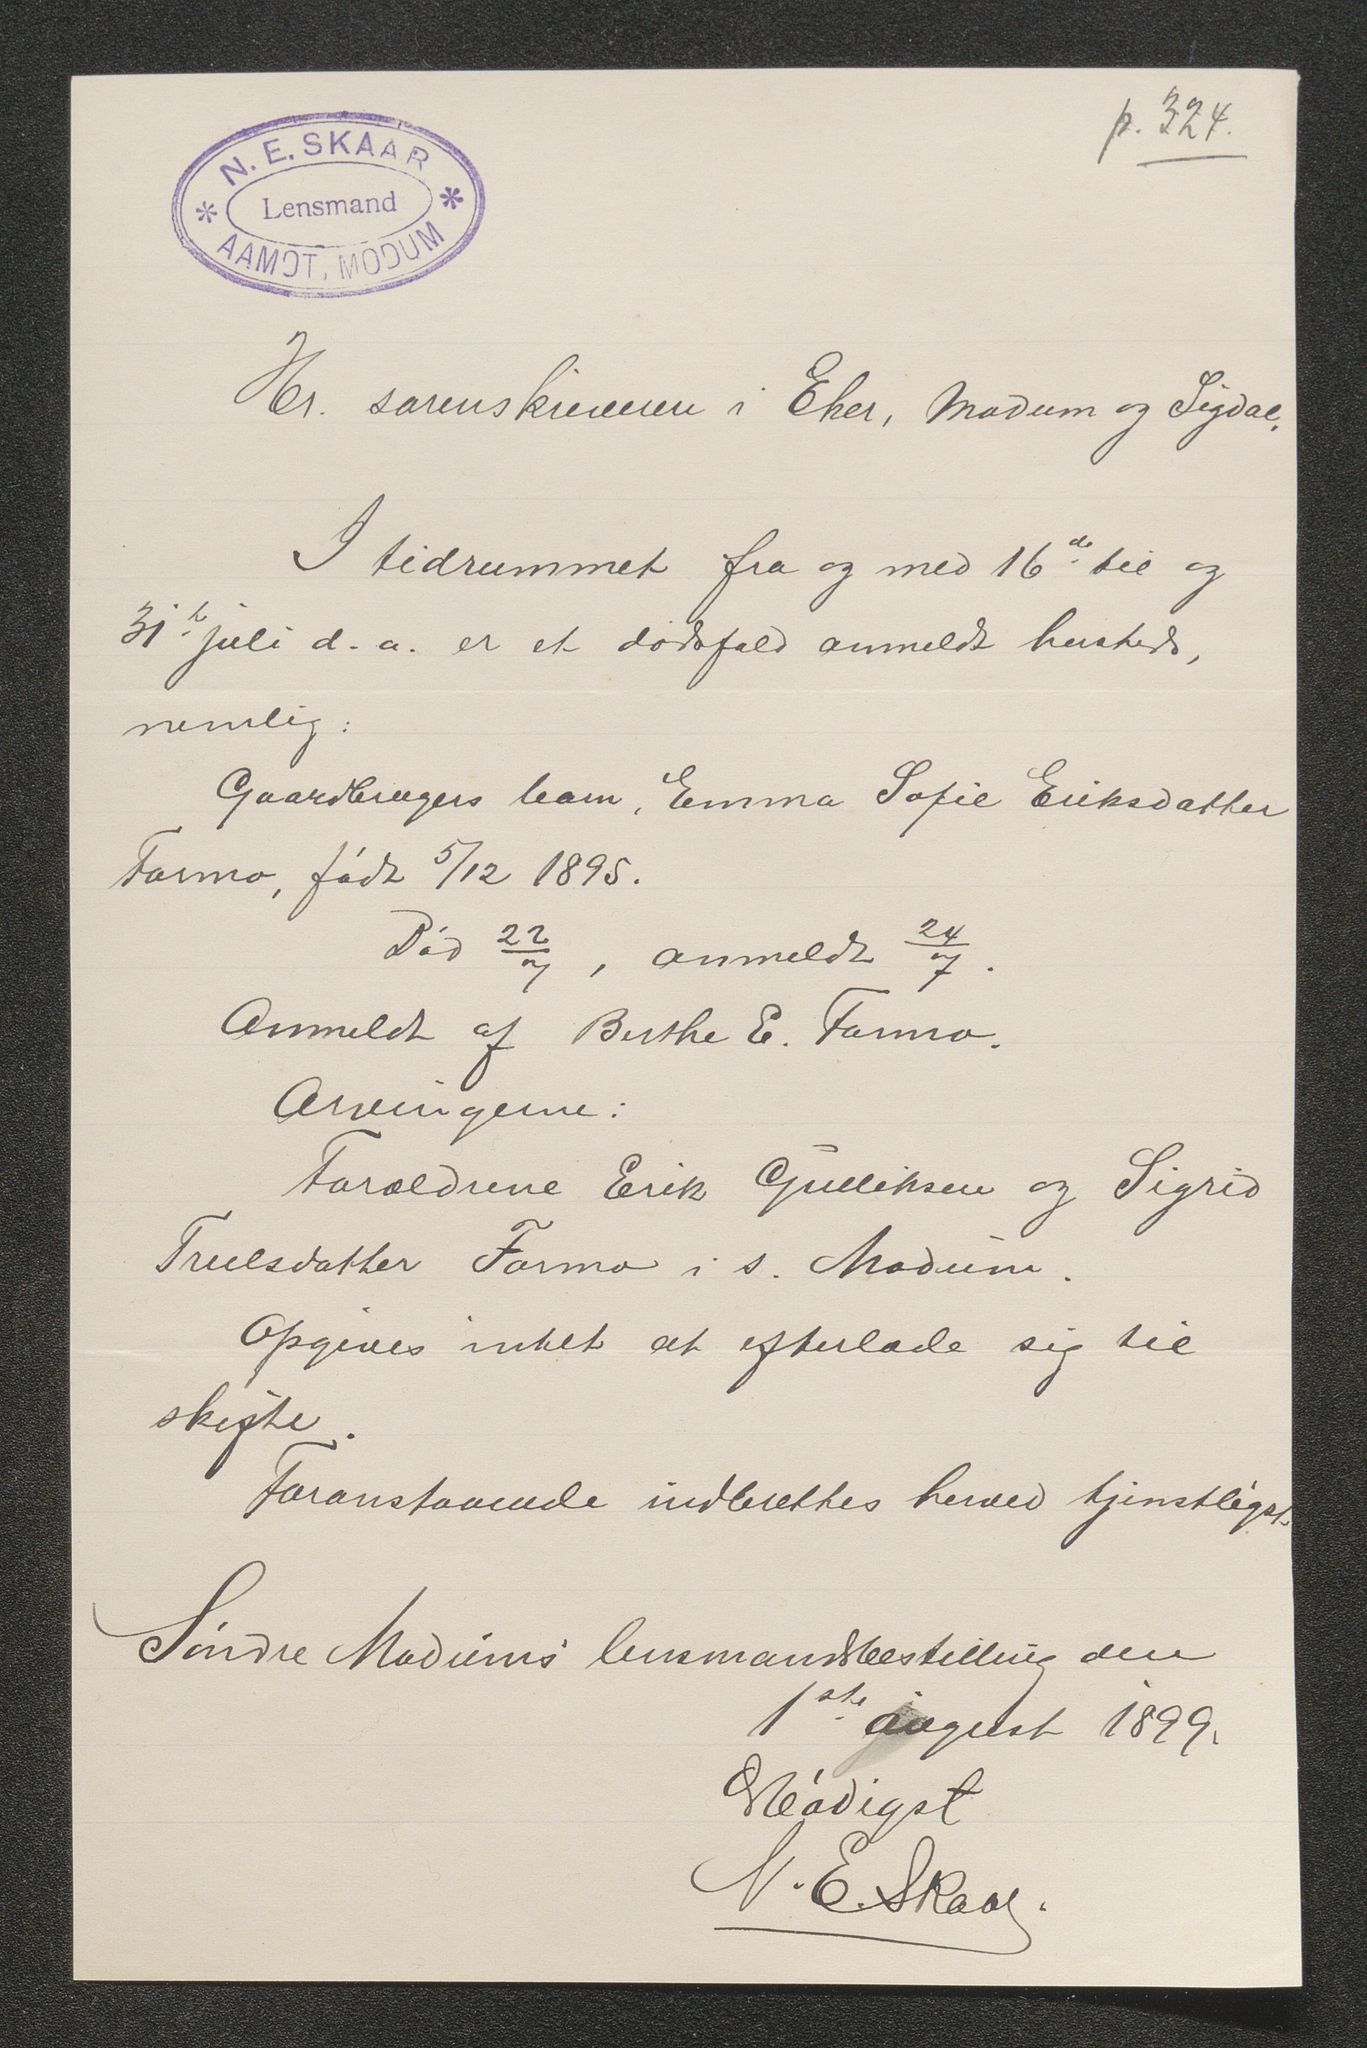 p. 324.
N. E. SKAAR
Lensmand
AAMOT, MODUM
Hr. sorenskriveren i Eker, Modum og Sigdal.
I tidrummet fra og med 16de til og
31te juli d. a. er et dødsfald anmeldt hersteds,
nemlig:
Gaardbrugers barn, Emma Sofie Eriksdatter
Formo, født 5/12 1895.
Død 22/7, anmeldt 24/7.
Anmeldt af Berthe E. Formo.
Arvingerne:
Forældrene Erik Gulliksen og Sigrid
Trulsdatter Formo i s. Modum.
Opgives intet at efterlade sig til
skifte.
Foranstaaende indberettes herved tjenstligst.
Søndre Modums lensmandsbestilling den
1ste august 1899.
Ærbødigst
N. E. Skaar.